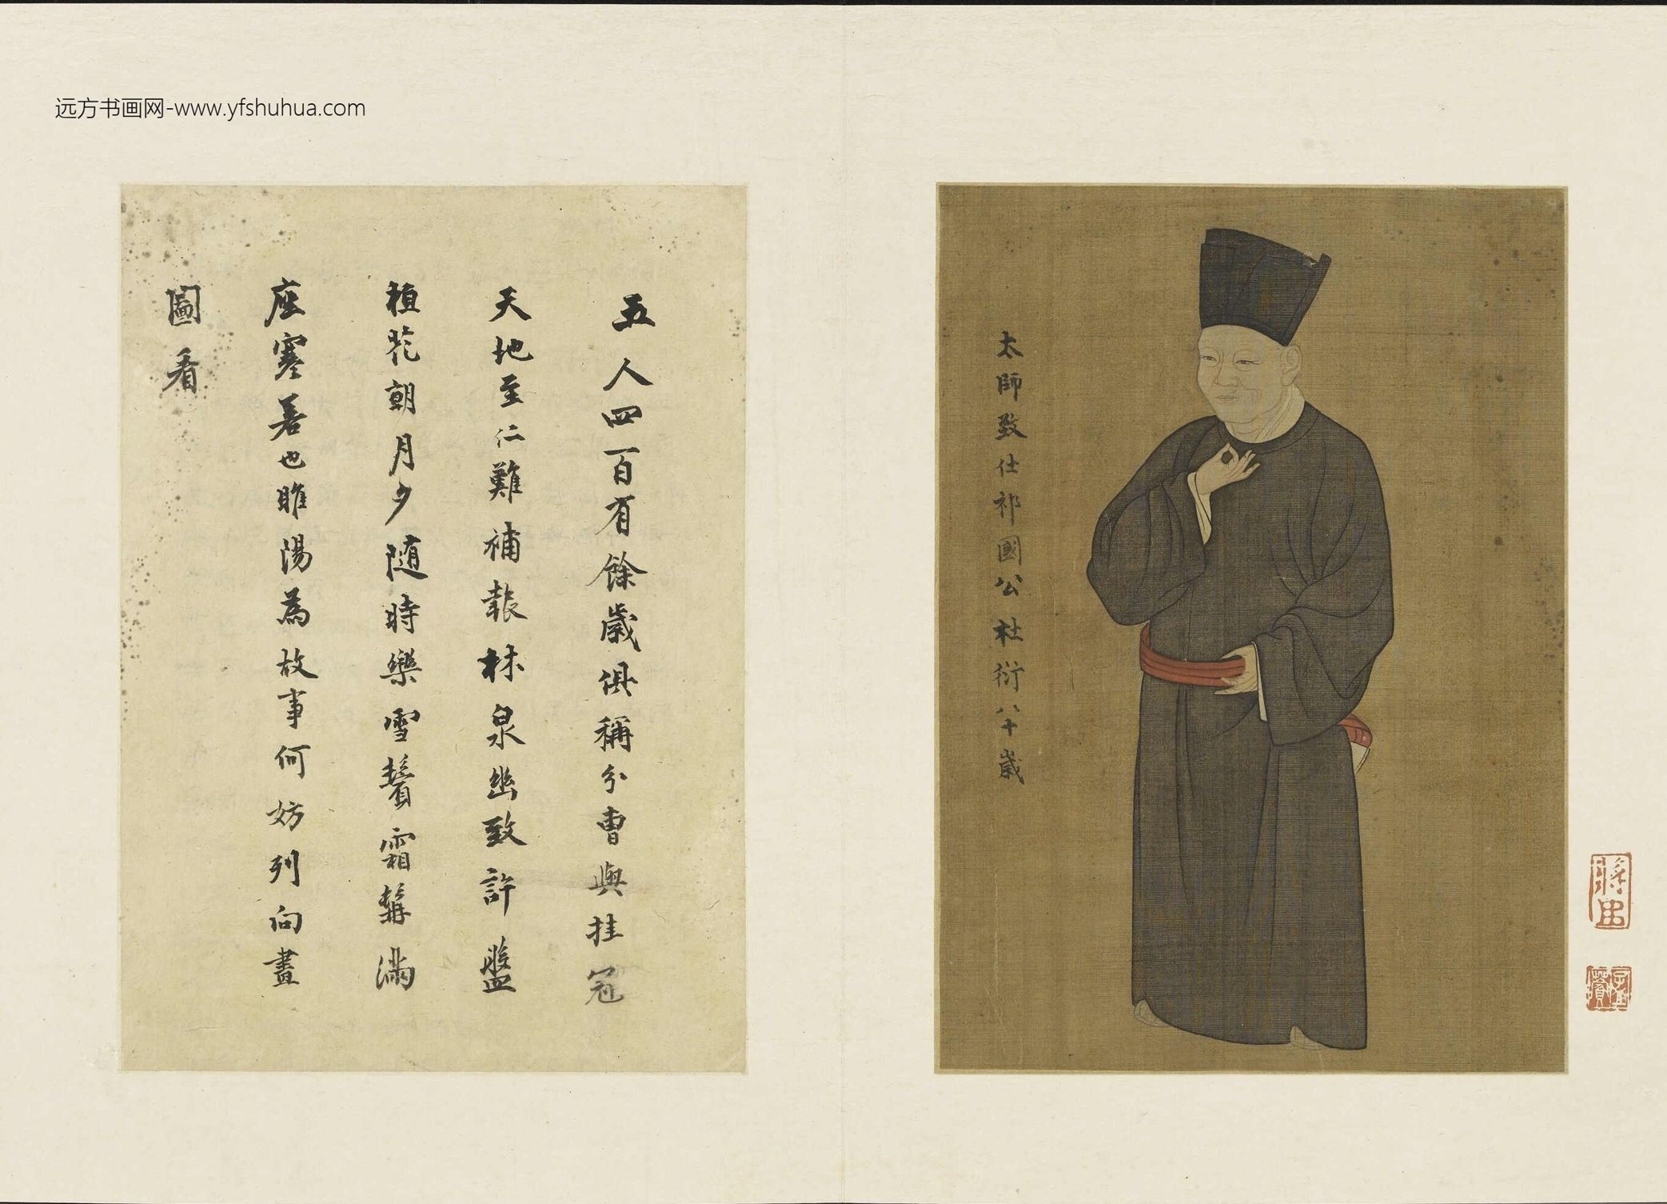 远方书画网-www.yfshuhua.com
太師致仕祁國公杜衍八十歲
五人四百有餘歲俱稱分曹與挂冠
天地至仁難補報林泉幽致許盤
桓花朝月夕随時樂雪鬢霜髯滿
座寒若也睢陽為故事何妨列向畫
圖看